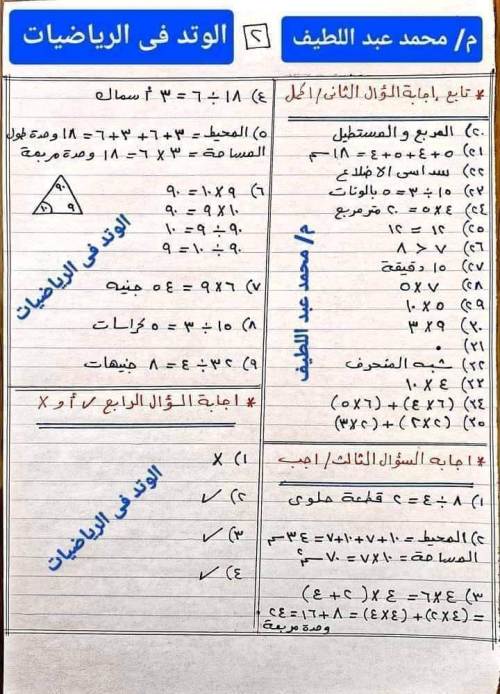 م/ محمد عبد اللطيف
٢
الوتد فى الرياضيات
* تابع إجابة السؤال الثانى / اكمل
٢٠) المربع و المستطيل
٢١) ٥ + ٤ + ٥ + ٤ = ١٨ سم
٢٢) سداسى الاضلاع
٢٣) ١٥ ÷ ٣ = ٥ بالونات
٢٤) ٤ × ٥ = ٢٠ متر مربع
٢٥) ١٢ = ١٢
٢٦) ٧ < ٨
٢٧) ١٥ دقيقة
٢٨) ٧ × ٥
٢٩) ٥ × ١٠
٣٠) ٩ × ٣
٣١) ٠
٣٢) شبه المنحرف
٣٣) ٤ × ١٠
٣٤) (٦ × ٤) + (٦ × ٥)
٣٥) (٢ × ٢) + (٢ × ٣)
* اجابه السؤال الثالث / اجب
١) ٨ ÷ ٤ = ٢ قطعة حلوى
٢) المحيط = ١٠ + ٧ + ١٠ + ٧ = ٣٤ سم
المساحة = ١٠ × ٧ = ٧٠ سم٢
٣) ٤ × ٦ = ٤ × (٢ + ٤)
= (٤ × ٢) + (٤ × ٤) = ٨ + ١٦ = ٢٤
وحدة مربعة
٤) ١٨ ÷ ٦ = ٣ أسماك
٥) المحيط = ٣ + ٦ + ٣ + ٦ = ١٨ وحدة طول
المساحة = ٣ × ٦ = ١٨ وحدة مربعة
٦) ٩ × ١٠ = ٩٠
١٠ × ٩ = ٩٠
٩٠ ÷ ٩ = ١٠
٩٠ ÷ ١٠ = ٩
٩٠
١٠
٩
٧) ٦ × ٩ = ٥٤ جنيه
٨) ١٥ ÷ ٣ = ٥ كراسات
٩) ٣٢ ÷ ٤ = ٨ جنيهات
* اجابة السؤال الرابع √ أو X
١) X
٢) ✓
٣) ✓
٤) ✓
م/ محمد عبد اللطيف
الوتد فى الرياضيات
الوتد فى الرياضيات